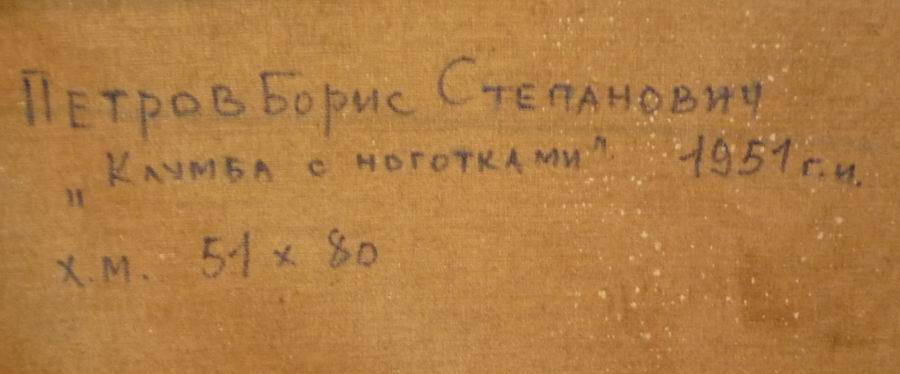 Петров Борис Степанович
„Клумба с ноготками" 1951 г.и.
х.м. 51 х 80